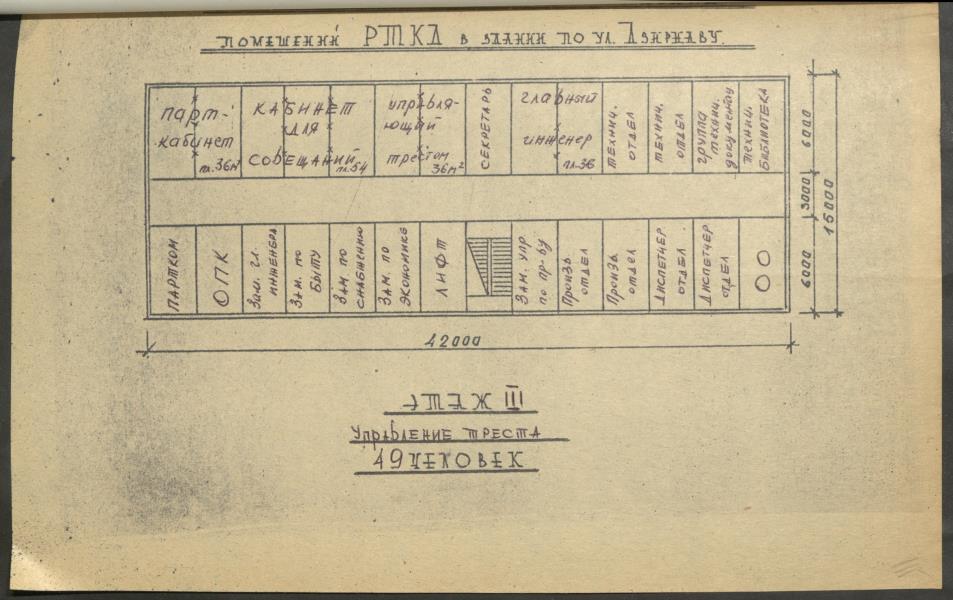 ПОМЕЩЕНИЙ РТКЛ В ЗДАНИИ ПО УЛ. ДЗИРНАВУ.
парт-
кабинет
пл. 36м²
КАБИНЕТ
ДЛЯ
СОВЕЩАНИЙ
пл. 54
управля-
ющий
трестом
36м²
СЕКРЕТАРЬ
главный
инженер
пл. 36
технич.
отдел
технич.
отдел
группа
технич.
документац
технич.
БИБЛИОТЕКА
6000
3000
6000
15000
ПАРТКОМ
ОПК
Зам. гл.
инженера
Зам. по
быту
Зам. по
снабжению
Зам. по
экономике
ЛИФТ
Зам. упр.
по пр-ву
Произв
отдел
Произв.
отдел
Диспетчер
отдел.
Диспетчер
отдел
42000
ЭТАЖ III
Управление треста
49 ЧЕЛОВЕК